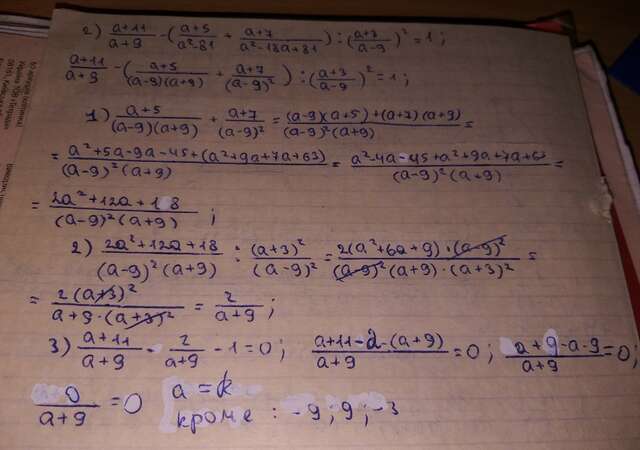 2) (a+11)/(a+9) - ((a+5)/(a²-81) + (a+7)/(a²-18a+81)) : ((a+3)/(a-9))² = 1;
(a+11)/(a+9) - ((a+5)/((a-9)(a+9)) + (a+7)/(a-9)²) : ((a+3)/(a-9))² = 1;
1) (a+5)/((a-9)(a+9)) + (a+7)/(a-9)² = ((a-9)(a+5)+(a+7)(a+9))/((a-9)²(a+9)) =
= (a²+5a-9a-45+(a²+9a+7a+63))/((a-9)²(a+9)) = (a²-4a-45+a²+9a+7a+63)/((a-9)²(a+9)) =
= (2a²+12a+18)/((a-9)²(a+9));
2) (2a²+12a+18)/((a-9)²(a+9)) : (a+3)²/(a-9)² = (2(a²+6a+9)·(a-9)²)/((a-9)²(a+9)·(a+3)²) =
= (2(a+3)²)/(a+9·(a+3)²) = 2/(a+9);
3) (a+11)/(a+9) - 2/(a+9) - 1 = 0; (a+11-2-(a+9))/(a+9) = 0; (a+9-a-9)/(a+9) = 0;
0/(a+9) = 0 a =
кроме : -9; 9; -3